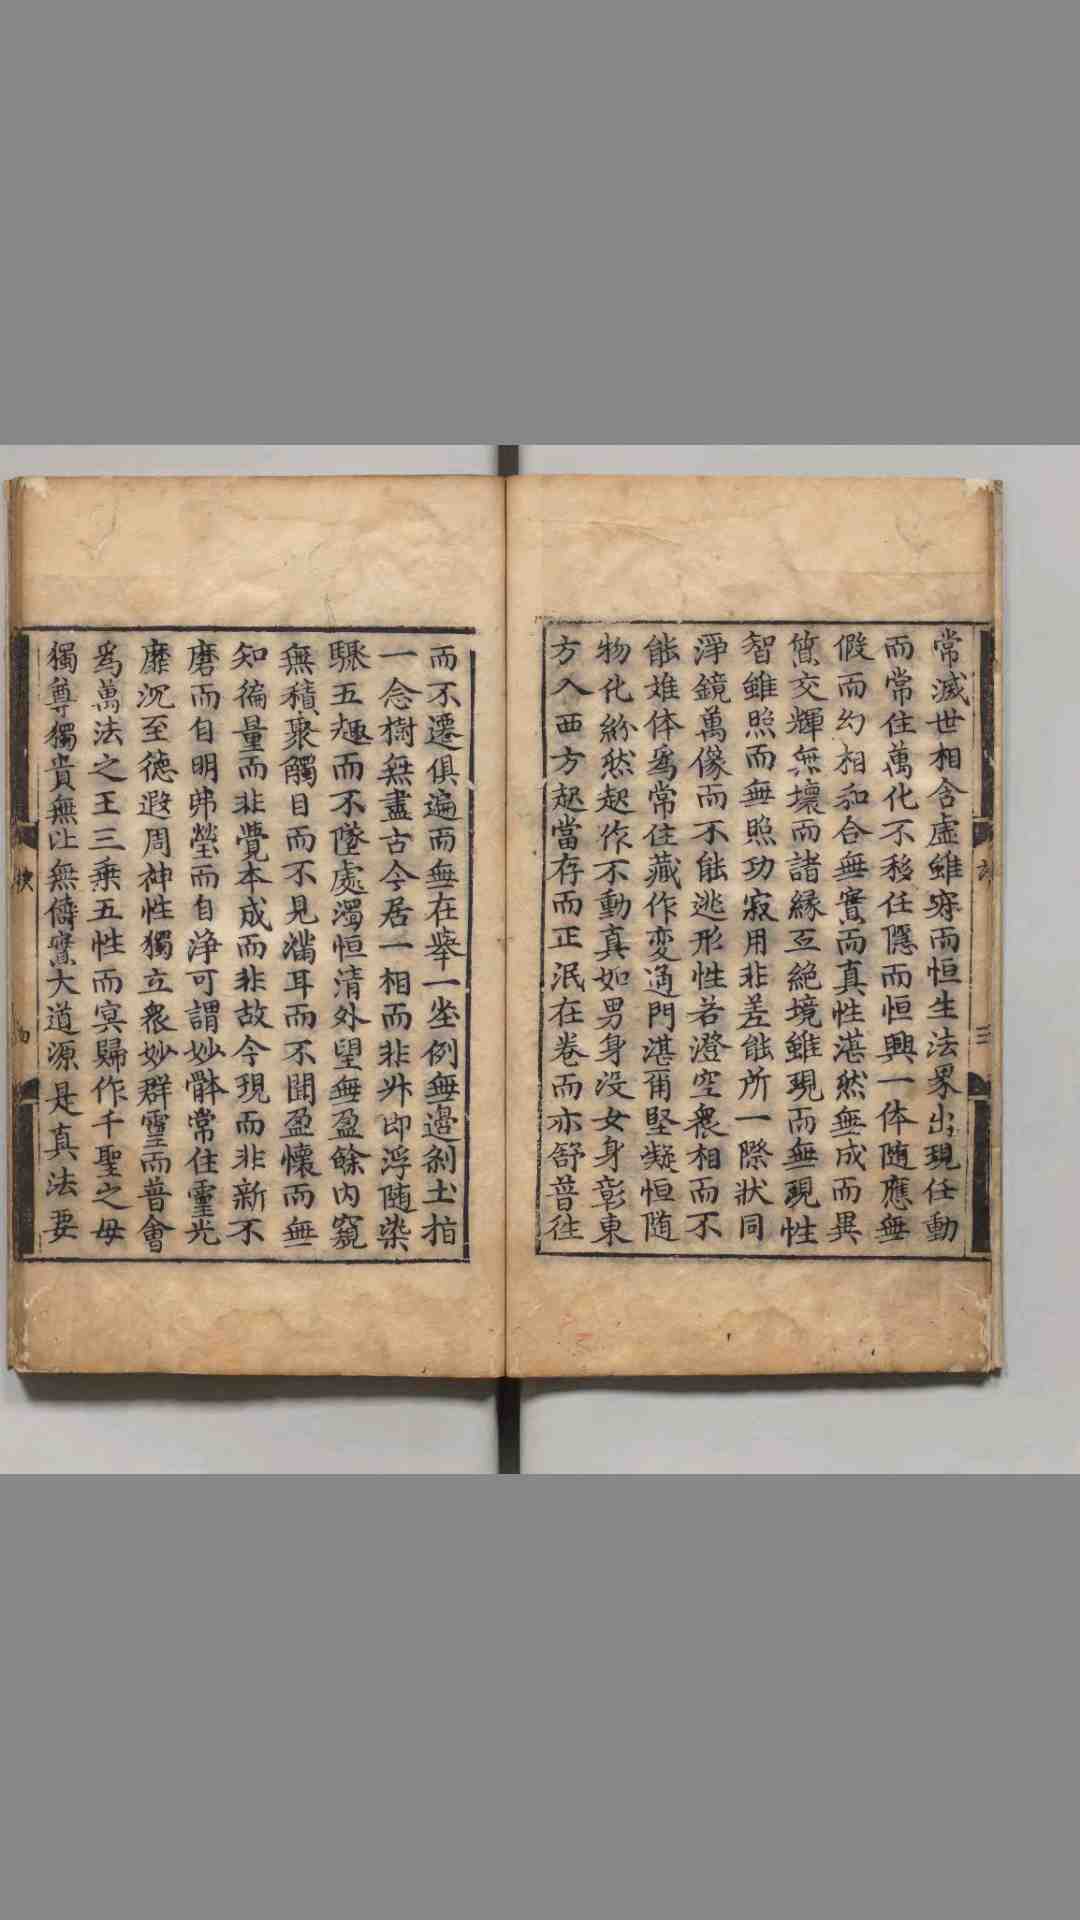 常滅世相含虛雖寂而恒生法界出現任動
而常住萬化不移任隱而恒興一体随應無
假而幻相和合無實而真性湛然無成而異
質交輝無壞而諸緣互絶境雖現而無現性
智雖照而無照功寂用非差能所一際狀同
淨鏡萬像而不能逃形性若澄空衆相而不
能雄体爲常住藏作变通門湛爾堅凝恒随
物化紛然起作不動真如男身没女身彰東
方入西方起當存而正泯在卷而亦舒普徃
而不遷俱遍而無在舉一坐例無邊剎土拈
一念樹無盡古今居一相而非升即浮随染
驟五趣而不墜處濁恒清外望無盈餘内窺
無積聚觸目而不見滿耳而不聞盈懷而無
知徧量而非覺本成而非故今現而非新不
磨而自明弗瑩而自淨可謂妙體常住靈光
靡沉至德遐周神性獨立衆妙群靈而普會
爲萬法之王三乗五性而冥歸作千聖之母
獨尊獨貴無比無儔實大道源是真法要
三